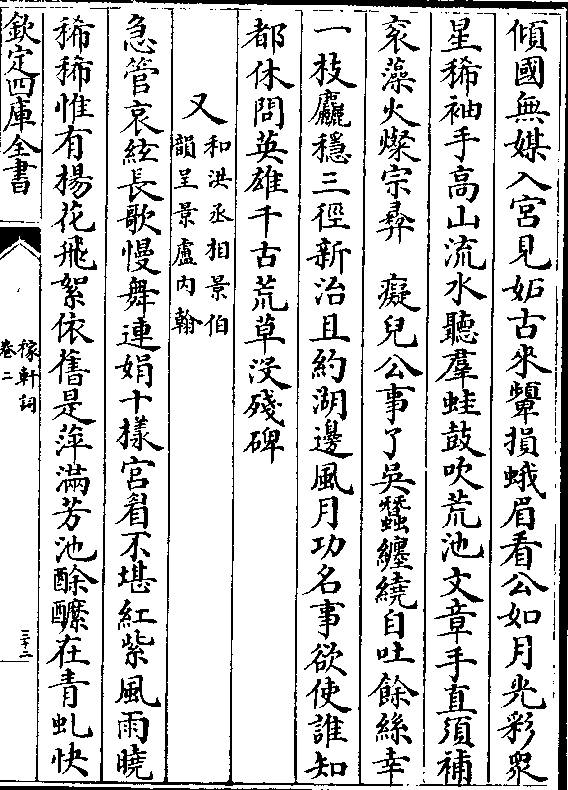 傾國無媒入宫見妬古來顰損蛾眉看公如月光彩衆
星稀袖手高山流水聽羣蛙鼓吹荒池文章手直須補
衮藻火燦宗彛　癡兒公事了吳蠶纏繞自吐餘絲幸
一枝麤穩三徑新治且約湖邊風月功名事欲使誰知
都休問英雄千古荒草没殘碑
又
和洪丞相景伯
韻呈景盧内翰
急管哀絃長歌慢舞連娟十様宫眉不堪紅紫風雨曉
稀稀惟有揚花飛絮依舊是萍滿芳池酴醿在青虬快
欽定四庫全書
稼軒詞
卷二
三十二